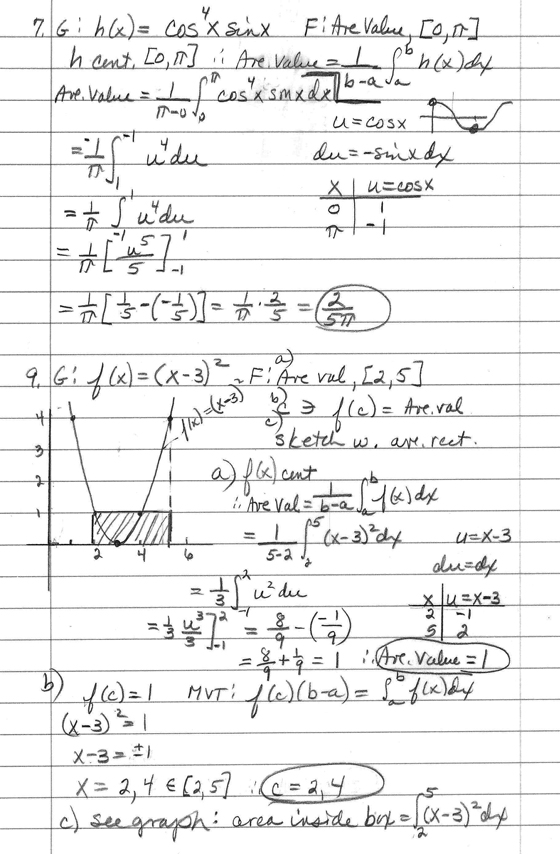 7. G: h(x) = cos⁴x sinx F: Ave Value, [0,π]
h cont. [0,π] ∴ Ave. Value = 1/(b-a) ∫_a^b h(x)dx
Ave. Value = 1/(π-0) ∫_0^π cos⁴x sinx dx
u = cosx
= -1/π ∫_1^-1 u⁴du
du = -sinx dx
x | u = cosx
0 | 1
π | -1
= 1/π ∫_-1^1 u⁴du
= 1/π [u⁵/5]_-1^1
= 1/π [1/5 - (-1/5)] = 1/π · 2/5 = 2/5π
9. G: f(x) = (x-3)² F: a) Ave val, [2,5]
b) c ∋ f(c) = Ave. val
c) sketch w. ave. rect.
4
3
2
1
2 4 6
f(x) = (x-3)
a) f(x) cont
∴ Ave Val = 1/(b-a) ∫_a^b f(x) dx
= 1/(5-2) ∫_2^5 (x-3)² dx
u = x-3
du = dx
= 1/3 ∫_-1^2 u² du
x | u = x-3
2 | -1
5 | 2
= 1/3 u³/3]_-1^2 = 8/9 - (-1/9)
= 8/9 + 1/9 = 1 ∴ Ave. Value = 1
b) f(c) = 1 MVT: f(c)(b-a) = ∫_a^b f(x)dx
(x-3)² = 1
x-3 = ±1
x = 2, 4 ∈ [2,5] ∴ c = 2, 4
c) see graph: area inside box = ∫_2^5 (x-3)² dx